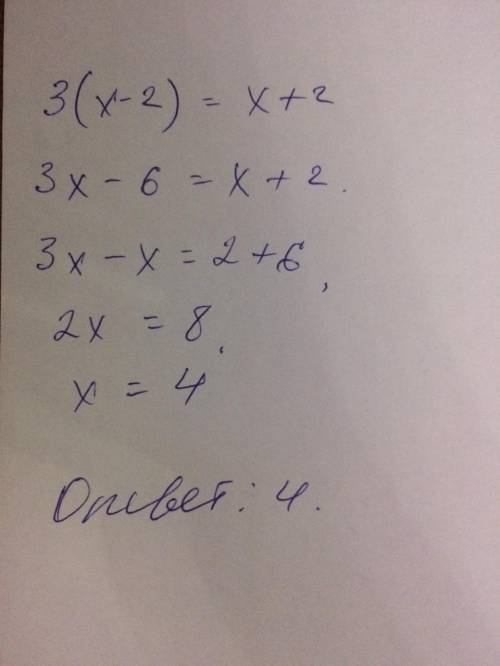 3(x-2) = x+2
3x - 6 = x + 2.
3x - x = 2+6,
2x = 8.
x = 4
Ответ: 4.